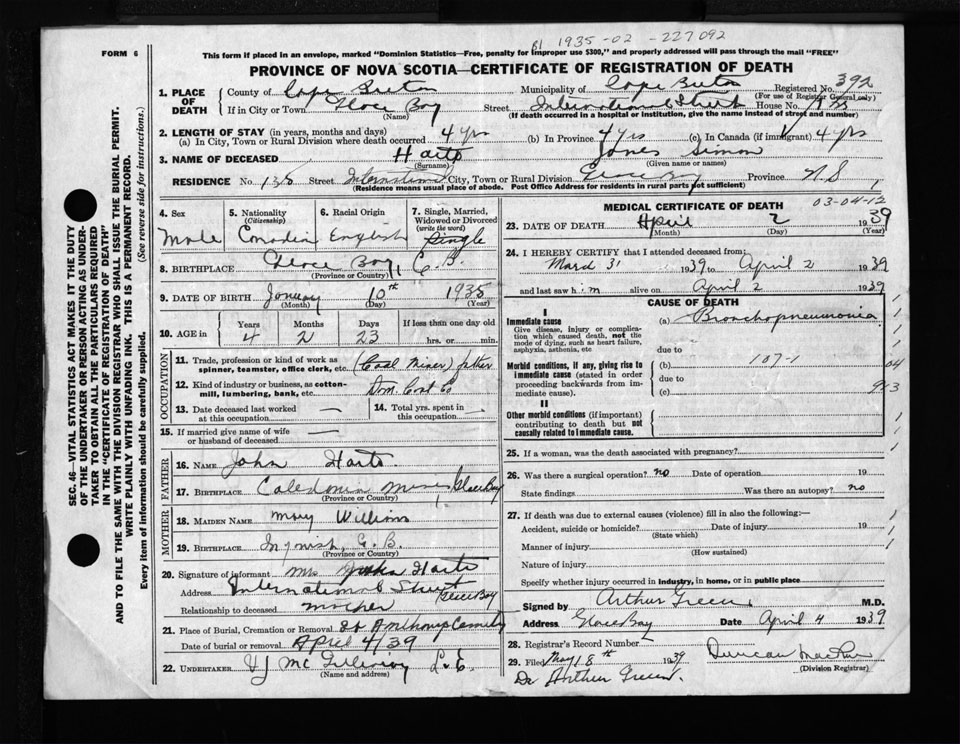 B1 1935-02-227092
FORM 6
This form if placed in an envelope, marked "Dominion Statistics—Free, penalty for improper use $300," and properly addressed will pass through the mail "FREE"
PROVINCE OF NOVA SCOTIA—CERTIFICATE OF REGISTRATION OF DEATH
SEC. 46—VITAL STATISTICS ACT MAKES IT THE DUTY
OF THE UNDERTAKER OR PERSON ACTING AS UNDER-
TAKER TO OBTAIN ALL THE PARTICULARS REQUIRED
IN THE "CERTIFICATE OF REGISTRATION OF DEATH"
AND TO FILE THE SAME WITH THE DIVISION REGISTRAR WHO SHALL ISSUE THE BURIAL PERMIT.
WRITE PLAINLY WITH UNFADING INK. THIS IS A PERMANENT RECORD.
Every item of information should be carefully supplied. (See reverse side for instructions.)
1. PLACE OF DEATH County of Cape Breton Municipality of Cape Breton Registered No. 392
(For use of Registrar General only)
If in City or Town Glace Bay Street International Street House No.
(Name) (If death occurred in a hospital or institution, give the name instead of street and number)
2. LENGTH OF STAY (in years, months and days)
(a) In City, Town or Rural Division where death occurred 4 yrs (b) In Province 4 yrs (c) In Canada (if immigrant) 4 yrs
3. NAME OF DECEASED Simon
(Surname) (Given name or names)
RESIDENCE No. Street International City, Town or Rural Division Glace Bay Province N.S
(Residence means usual place of abode. Post Office Address for residents in rural parts not sufficient)
4. Sex Male
5. Nationality (Citizenship) Canadian
6. Racial Origin English
7. Single, Married, Widowed or Divorced (write the word) Single
8. BIRTHPLACE Glace Bay, C.B.
(Province or Country)
9. DATE OF BIRTH January 10th 1935
(Month) (Day) (Year)
10. AGE in Years Months Days If less than one day old
4 2 23 hrs. or min.
OCCUPATION
11. Trade, profession or kind of work as spinner, teamster, office clerk, etc. (Coal Miner) father
12. Kind of industry or business, as cotton-mill, lumbering, bank, etc. Dom. Coal Co
13. Date deceased last worked at this occupation —
14. Total yrs. spent in this occupation —
15. If married give name of wife or husband of deceased —
FATHER
16. NAME John
17. BIRTHPLACE Caledonia Mines, Glace Bay
(Province or Country)
MOTHER
18. MAIDEN NAME Mary Williams
19. BIRTHPLACE Ingonish, C.B.
(Province or Country)
20. Signature of informant Mrs John
Address International Street Glace Bay
Relationship to deceased mother
21. Place of Burial, Cremation or Removal St Anthonys Cemetery
Date of burial or removal April 4/39
22. UNDERTAKER
(Name and address)
MEDICAL CERTIFICATE OF DEATH
03-04-12
23. DATE OF DEATH April 2 1939
(Month) (Day) (Year)
24. I HEREBY CERTIFY that I attended deceased from:
March 31 1939 to April 2 1939
and last saw him alive on April 2 1939
CAUSE OF DEATH
I
Immediate cause
Give disease, injury or complication which caused death, not the mode of dying, such as heart failure, asphyxia, asthenia, etc
(a) Bronchopneumonia
due to
Morbid conditions, if any, giving rise to immediate cause (stated in order proceeding backwards from immediate cause).
(b) 107-1
due to
(c)
II
Other morbid conditions (if important) contributing to death but not causally related to immediate cause.
25. If a woman, was the death associated with pregnancy?
26. Was there a surgical operation? no Date of operation 19
State findings Was there an autopsy? no
27. If death was due to external causes (violence) fill in also the following:—
Accident, suicide or homicide? Date of injury 19
(State which)
Manner of injury
(How sustained)
Nature of injury
Specify whether injury occurred in industry, in home, or in public place
Signed by Arthur Green M.D.
Address Glace Bay Date April 4 1939
28. Registrar's Record Number
29. Filed May 18th 1939 Duncan
(Division Registrar)
Dr Arthur Green.